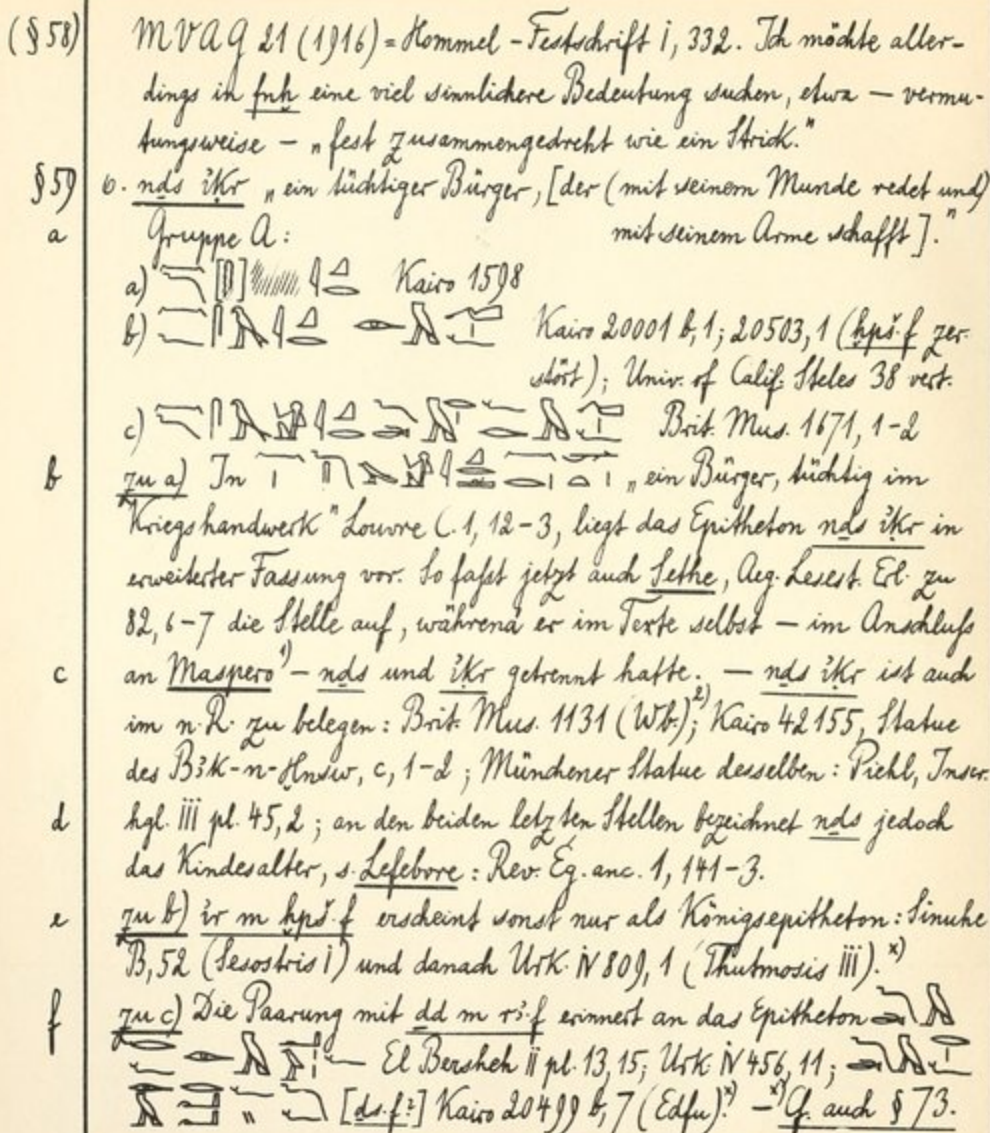 (§58) MVAG 21 (1916) = Hommel-Festschrift I, 332. Ich möchte aller-
dings in fnḫ eine viel sinnlichere Bedeutung suchen, etwa — vermu-
tungsweise — „fest zusammengedreht wie ein Strick."
§59 6. nḏs iḳr „ein tüchtiger Bürger, [der (mit seinem Munde redet und)
a Gruppe A: mit seinem Arme schafft]."
a) Kairo 1598
b) Kairo 20001 b, 1; 20503, 1 (ḫpš·f zer-
stört); Univ. of Calif. Steles 38 vert.
c) Brit. Mus. 1671, 1-2
b zu a) In „ein Bürger, tüchtig im
Kriegshandwerk" Louvre C. 1, 12-3, liegt das Epitheton nḏs iḳr in
erweiterter Fassung vor. So faßt jetzt auch Sethe, Aeg. Lesest. Erl. zu
82, 6-7 die Stelle auf, während er im Texte selbst — im Anschluß
c an Maspero¹⁾ — nḏs und iḳr getrennt hatte. — nḏs iḳr ist auch
im n. R. zu belegen: Brit. Mus. 1131 (Wb.)²⁾; Kairo 42155, Statue
des Bꜣk-n-Ḫnsw, c, 1-2; Münchener Statue desselben: Piehl, Inscr.
d hgl. III pl. 45, 2; an den beiden letzten Stellen bezeichnet nḏs jedoch
das Kindesalter, s. Lefebvre: Rev. Eg. anc. 1, 141-3.
e zu b) ir m ḫpš·f erscheint sonst nur als Königsepitheton: Sinuhe
B, 52 (Sesostris I) und danach Urk. IV 809, 1 (Thutmosis III).ˣ⁾
f zu c) Die Paarung mit ḏd m rꜣ·f erinnert an das Epitheton
El Bersheh II pl. 13, 15; Urk. IV 456, 11;
[ds·f?] Kairo 20499 b, 7 (Edfu).ˣ⁾ — ˣ⁾ Cf. auch § 73.